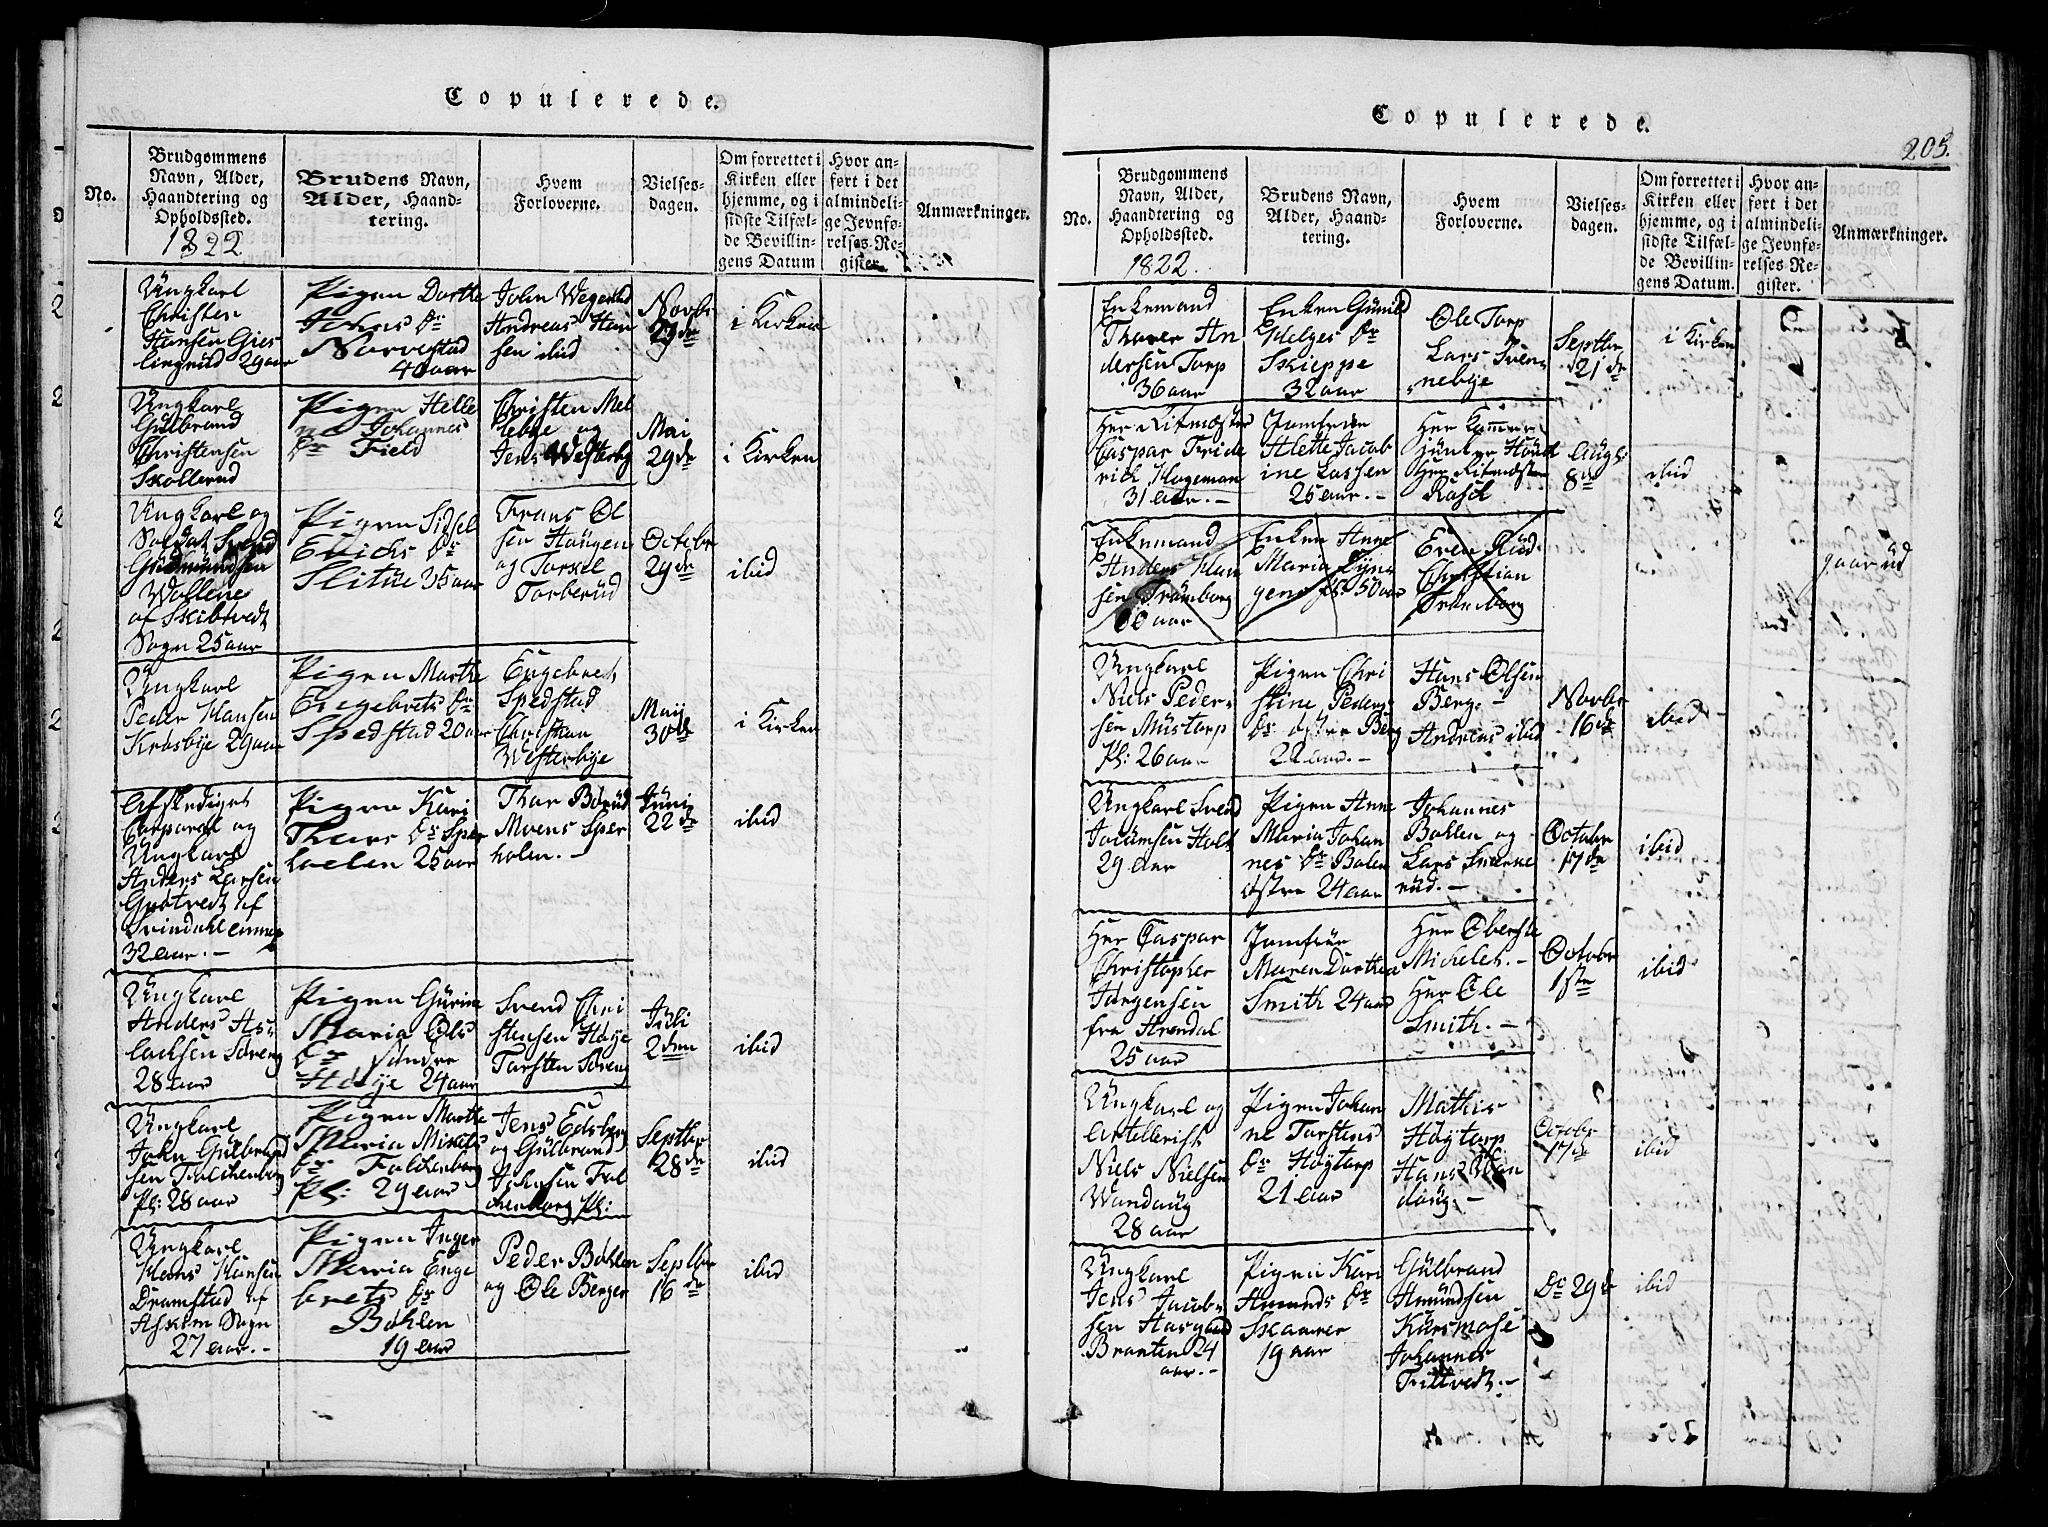 Copulerede.
No.
Brudgommens Navn, Alder, Haandtering og Opholdssted.
1822
Brudens Navn, Alder, Haandtering.
Hvem Forloverne.
Vielsesdagen.
Om forrettet i Kirken eller hjemme, og i sidste Tilfælde Bevillingens Datum
Hvor anført i det almindelige Jevnførelses-Register.
Anmærkninger.
Ungkarl
Christen
Hansen Gies
lingrud 29 aar
Pigen Dorthe
Johns Dr
Narvestad
40 aar
John
Andreas Han
sen ibid
Novbr
29de
i Kirken
Ungkarl
Gulbrand
Christensen
Skollerud
Pigen Helle
ne Johannes
Dr Field
Christen Mel
lebye og
Jens Westerby
Mai
29de
i Kirken
Ungkarl og
Soldat Svend
Gudmundsen
Wollene
af Skibtvedt
Sogn 25 aar
Pigen Sidsel
Erichs Dr
Slitue 35 aar
Frans Ol
sen Haugen
og Torkel
Torberud
Octobr
29de
ibid
Ungkarl
Peder Hansen
Krosbye 29 aar
Pigen Marthe
Engebrets Dr
Spedstad 20 aar
Engebret
Spedstad
Christian
Westerbye
Maij
30de
i Kirken
Afskediget
Corporal og
Ungkarl
Anders Larsen
Grøtvedt af
Svindahl
32 aar.-
Pigen Kari
Thors Dr Sper
hoelen 25 aar
Thor Børud
Moens Sper
holen.-
Juni
22de
ibid
Ungkarl
Anders As
lachsen Søreng
28 aar
Pigen Gurine
Maria Ols
Dr søndre
Høije 24 aar
Svend Chri
stensen Høije
Torsten Søreng
Juli
2den
ibid
Ungkarl
John Gulbrand
sen Falchenborg
Pl: 28 aar
Pigen Marthe
Maria Mikels
Dr Falchenborg
Pl: 29 aar
Jens Edsberg
og Gulbrand
Johnsen Fal
chenborg Pl:
Septbr
28de
ibid
Ungkarl
Hans Hansen
Dramstad af
Askim Sogn
27 aar.-
Pigen Inger
Maria Enge
brets Dr
Bøhlen
19 aar
Peder Bøhlen
og Ole Berger
Septbr
16de
ibid
Copulerede.
205.
No.
Brudgommens Navn, Alder, Haandtering og Opholdssted.
1822.
Brudens Navn, Alder, Haandtering.
Hvem Forloverne.
Vielsesdagen.
Om forrettet i Kirken eller hjemme, og i sidste Tilfælde Bevillingens Datum.
Hvor anført i det almindelige Jevnførelses-Register.
Anmærkninger.
Enkemand
Thorer An
dersen Torp
36 aar
Enken Gunild
Helges Dr
Skieppe
32 aar
Ole Torp
Lars Sven
nebye
Septbr
21de
i Kirken
Her Ritmester
Caspar Fride
rich Hageman
31 aar.-
Jomfrue
Alette Jacob
ine Lassen
25 aar.-
Her Kammer
junker Huuth
Her Ritmester
Rasch
Augs:
8de
ibid
Enkemand
Anders Han
sen Trømborg
60 aar
Enken Anne
Maria
50 aar
Even Rud
Christian
Trømborg
gaarud
Ungkarl
Niels Peder
sen Mustorp
Pl: 26 aar
Pigen Chri
stine Peders
Dr østre Berg
22 aar.-
Hans Olsen
Berg.-
Andreas ibid
Novbr
16de
ibid
Ungkarl Svend
Jocumsen Holt
29 aar
Pigen Anne
Maria Johan
nes Dr Bølen
østre 24 aar
Johannes
Bøhlen og
Lars Snerke
rud.-
Octobr
17de
ibid
Her Caspar
Christopher
Jørgensen
fra Arendal
25 aar
Jomfrue
Maren Dorthea
Smith 24 aar
Her Oberste
Michelet.-
Her Ole
Smith.-
Octobr
1ste
ibid
Ungkarl og
Artellerist
Niels Nielsen
Wandaug
28 aar
Pigen Johan
ne Torstens
Dr Høytorp
21 aar
Mathis
Høytorp
Hans Wan
daug.-
Octobr
17de
ibid
Ungkarl
Jens Jacob
sen Aasgaard
Branten 24
aar.-
Pigen Kari
Amunds Dr
Skaarer
19 aar
Gulbrand
Amundsen
Kursmose
Johannes
Tritvedt.-
Do 29de
ibid